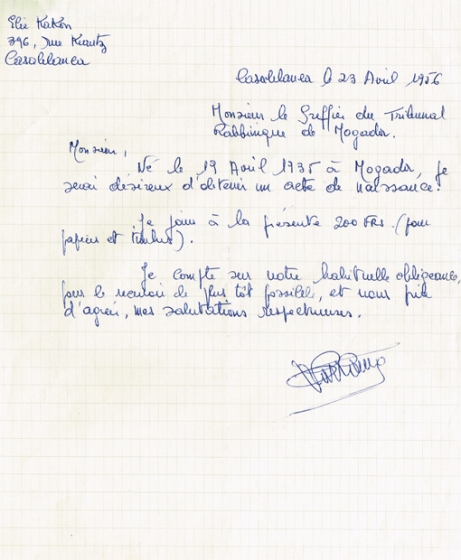 Elie Kakon
396, Rue Krantz
Casablanca
Casablanca le 23 Avril 1956
Monsieur le Greffier du Tribunal
Rabbinique de Mogador.
Monsieur,
Né le 19 Avril 1935 à Mogador, je
serai désireux d'obtenir un acte de naissance.
Je joins à la présente 200 FRS. (pour
papier et timbre).
Je compte sur votre habituelle obligeance,
pour le recevoir le plus tôt possible, et vous prie
d'agréer, mes salutations respectueuses.